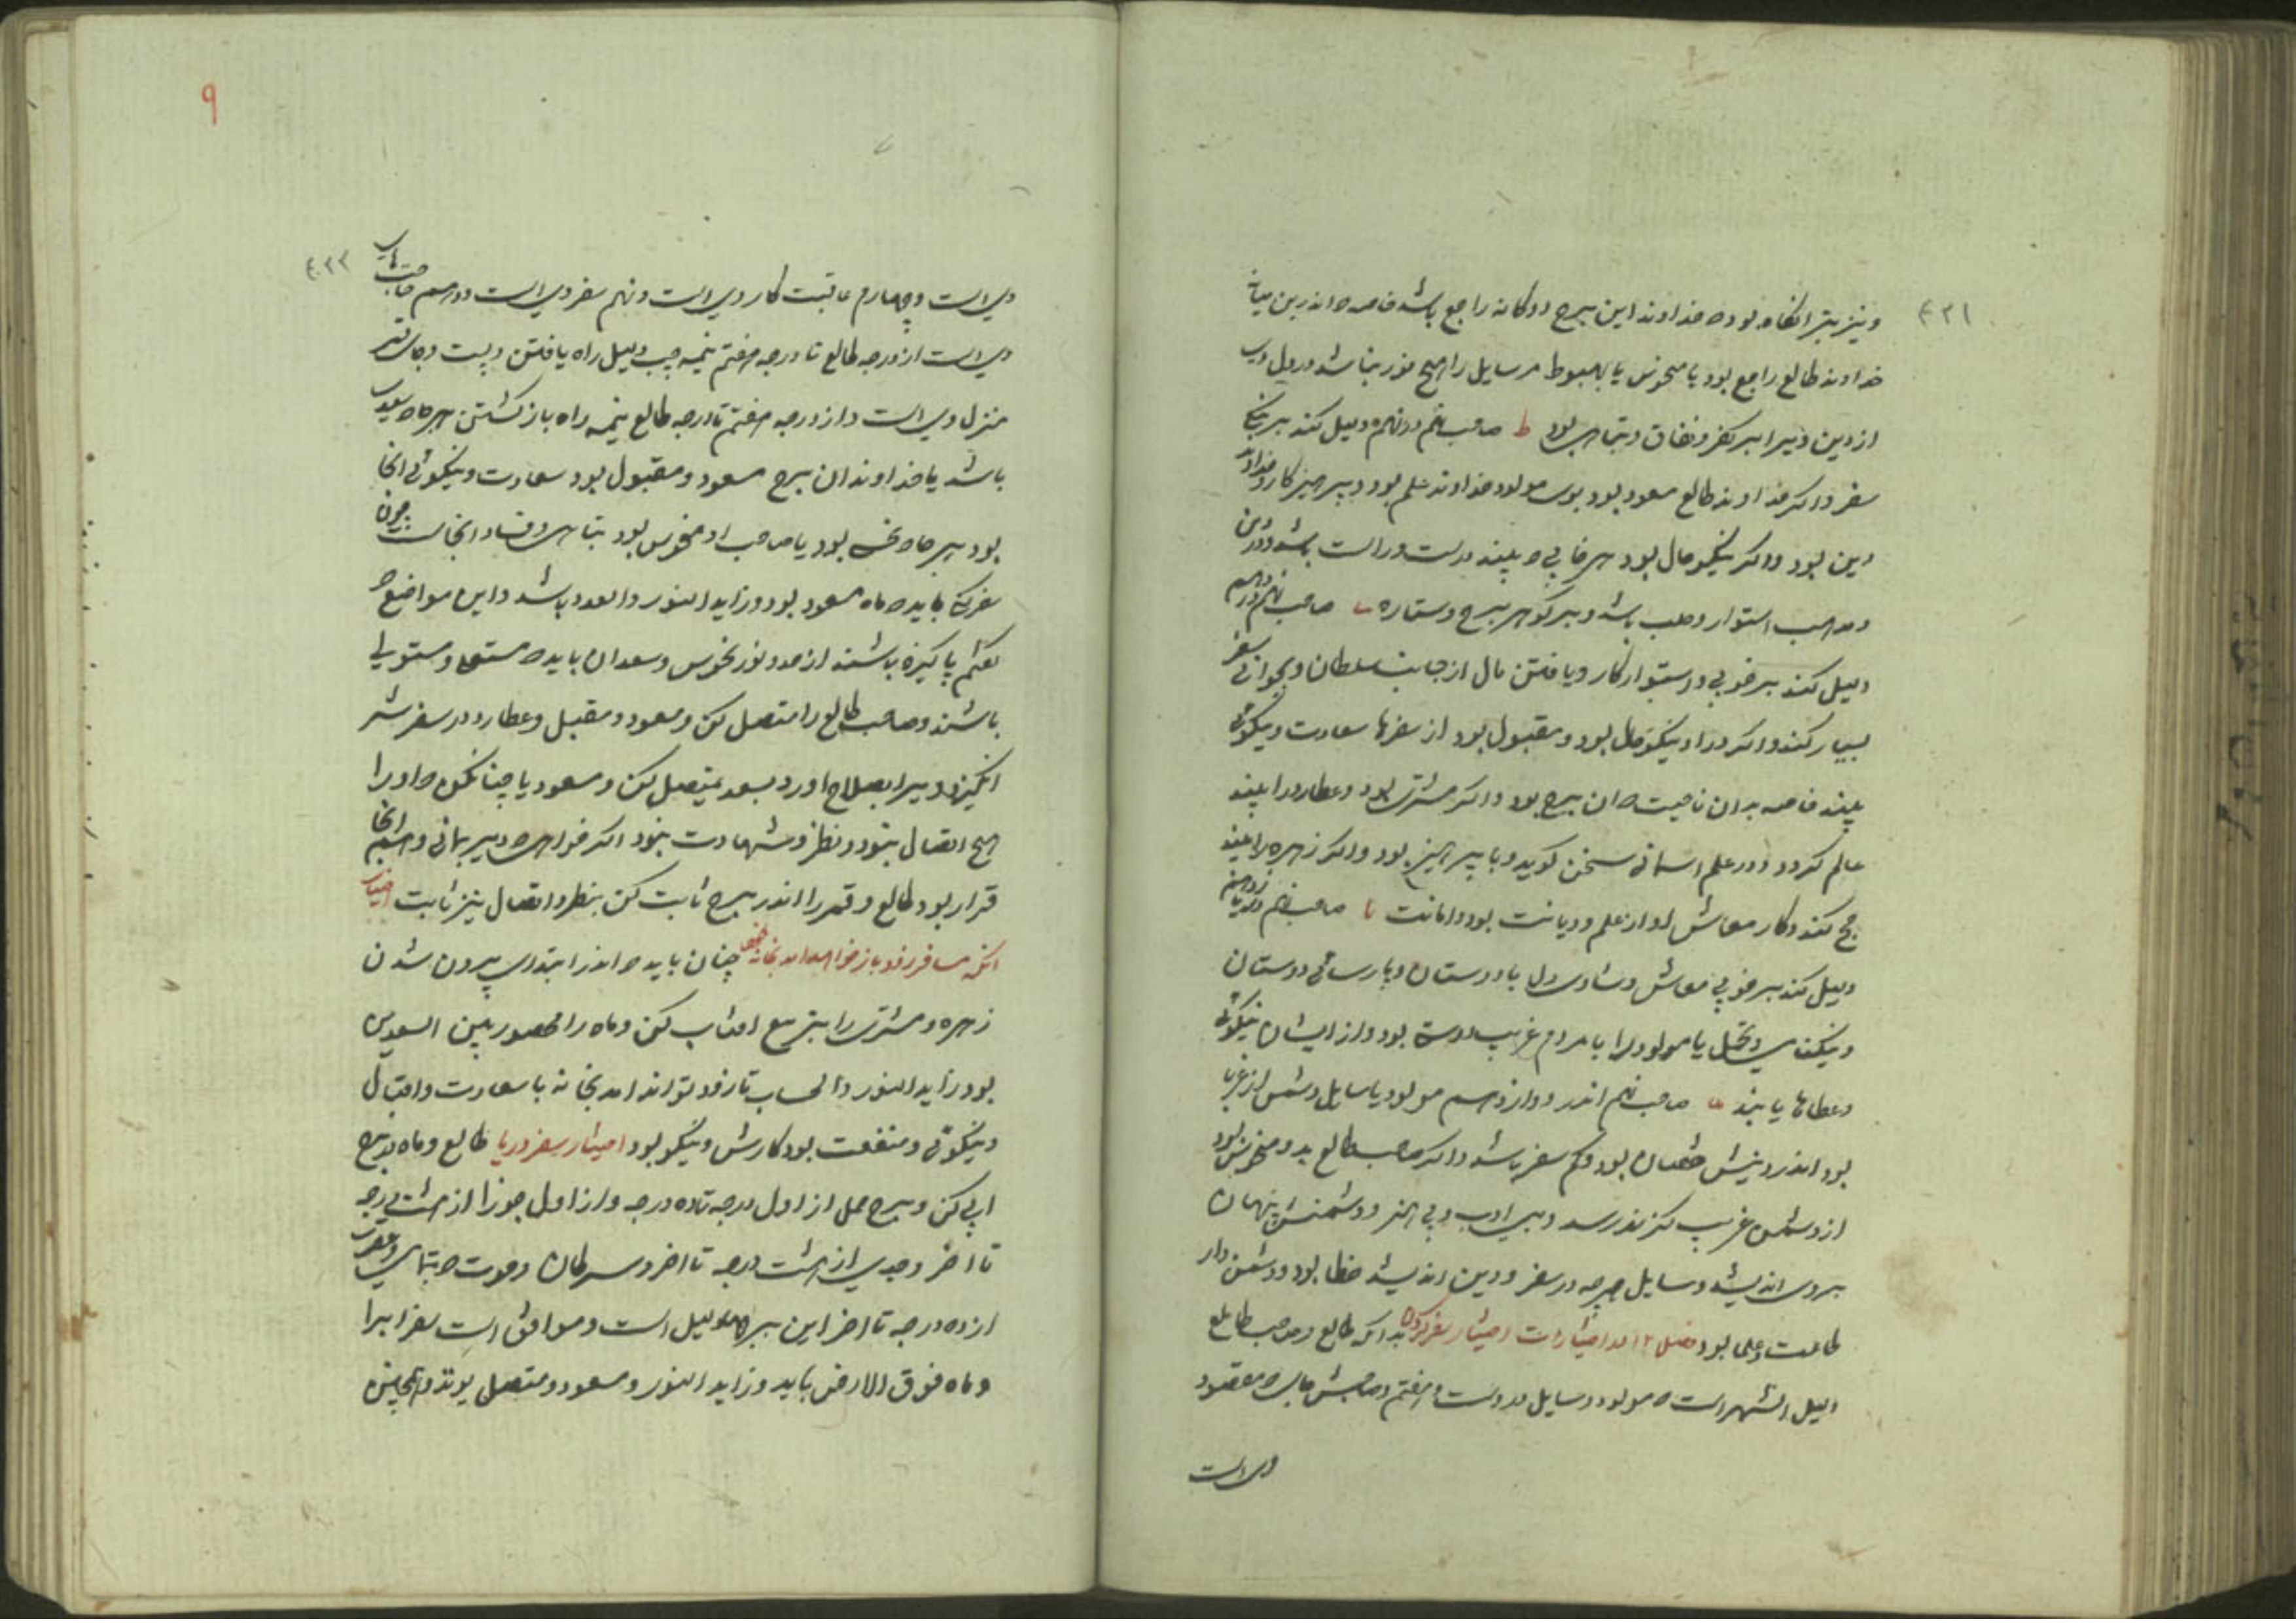 ٤٢١
ونیز بتر انگاه بود که خداوند این برج دوکانه راجع باشد خاصه که اندرین میانه
خداوند طالع راجع بود یا منحوس یا بهبوط مر سایل را هیچ نور نباشد در دل وی
از دین و برا بر کفر و نفاق و تباهی بود ط صاحب نهم در نهم دلیل کند بر نیکی
سفر و اگر خداوند طالع مسعود بود بوی مولود خداوند علم بود و پرهیزکار و خداوند
دین بود و اگر نیکو حال بود هر خابی که بیند درست و راست باشد و در دین
و مذهب استوار و صلب باشد و بر گوهر برج و ستاره ی صاحب نهم در دهم
دلیل کند بر خوبی و استوار کار و یافتن مال از جانب سلطان و بجوانی سفر
بسیار کند و اگر در او نیکو حال بود و مقبول بود از سفرها سعادت و نیکوئی
بیند خاصه بدان ناحیت که ان برج بود و اگر مشتری بود و عطارد را بیند
عالم گردد و در علم اسمانی سخن گوید و با پرهیز بود و اگر زهره را بیند
حج کند و کار معاش او از علم و دیانت بود و امانت یا صاحب نهم در یازدهم
دلیل کند بر خوبی معاش و شادی دل با دوستان و پارسائی دوستان
ونیکنامی و تجمل یا مولود را با مردم غریب دوستی بود و از ایشان نیکوئی
و عطاها یابند یب صاحب نهم اندر دوازدهم مولود یا سایل دشمن از غربا
بود اندر دینش نقصان بود و کم سفر باشد و اگر صاحب طالع بد و منحوس بود
از دشمن غریب گزند رسد و بی ادب و بی هنر و دشمنش پنهان
بر وی اندیشد و سایل هرچه در سفر و دین اندیشد خطا بود و دشمن دار
طاعت و علما بود فصل ١٢ اندر اختیارات اختیار سفر کردن بدانکه طالع و صاحب طالع
دلیل الشهر است که مولود و سایل در وست و هفتم و صاحبش جای که مقصود
وی است
٩
٤٢٢
وی است و چهارم عاقبت کار وی است و نهم سفر وی است و دهم حاجت های
وی است از درجه طالع تا درجه هفتم نیمه چپ دلیل راه یافتن و پست و جای
منزل وی است و از درجه هفتم تا درجه طالع نیمه راه باز گشتن هر جا که سعدی
باشد یا خداوند ان برج مسعود و مقبول بود سعادت و نیکوئی انجا
بود هر جا که نحس بود یا صاحب او منحوس بود تباهی و فساد انجاست چون
سفر کنی باید که ماه مسعود بود و زاید النور والعدد باشد و این مواضع که
گفتم پاکیزه باشند از عدو نور نحوس و سعدان باید که مستعلی و مستولی
باشند و صاحب طالع را متصل کن و مسعود و مقبل و عطارد در سفر شر
انگیزد ویرا بصلاح اورد بسعد متصل کن و مسعود یا چنان کن که او را
هیچ اتصال نبود و نظر و شهادت نبود اگر خواهی که دیر بمانی و هم انجا
قرار بود طالع و قمر را اندر برج ثابت کن بنظر و اتصال نیز ثابت اختیار
انکه مسافر زود باز خواهد امد بخانه چنان باید که اندر ابتدای بیرون شدن
زهره و مشتری را بتربیع افتاب کن و ماه را محصور بین السعدین
بود زاید النور والحساب تا زود تواند امد بخانه با سعادت و اقبال
ونیکوئی و منفعت بود کارش و نیکو بود اختیار سفر دریا طالع و ماه ببرج
ابی کن و برج حمل از اول درجه تا ده درجه و از اول جوزا از هشت درجه
تا اخر و جدی از هشت درجه تا اخر و سرطان و حوت که بتمامی و عقرب
از ده درجه تا اخر این برجها دلیل است و موافق است سفر ابرا
و ماه فوق الارض باید و زاید النور و مسعود و متصل بوند و همچنین